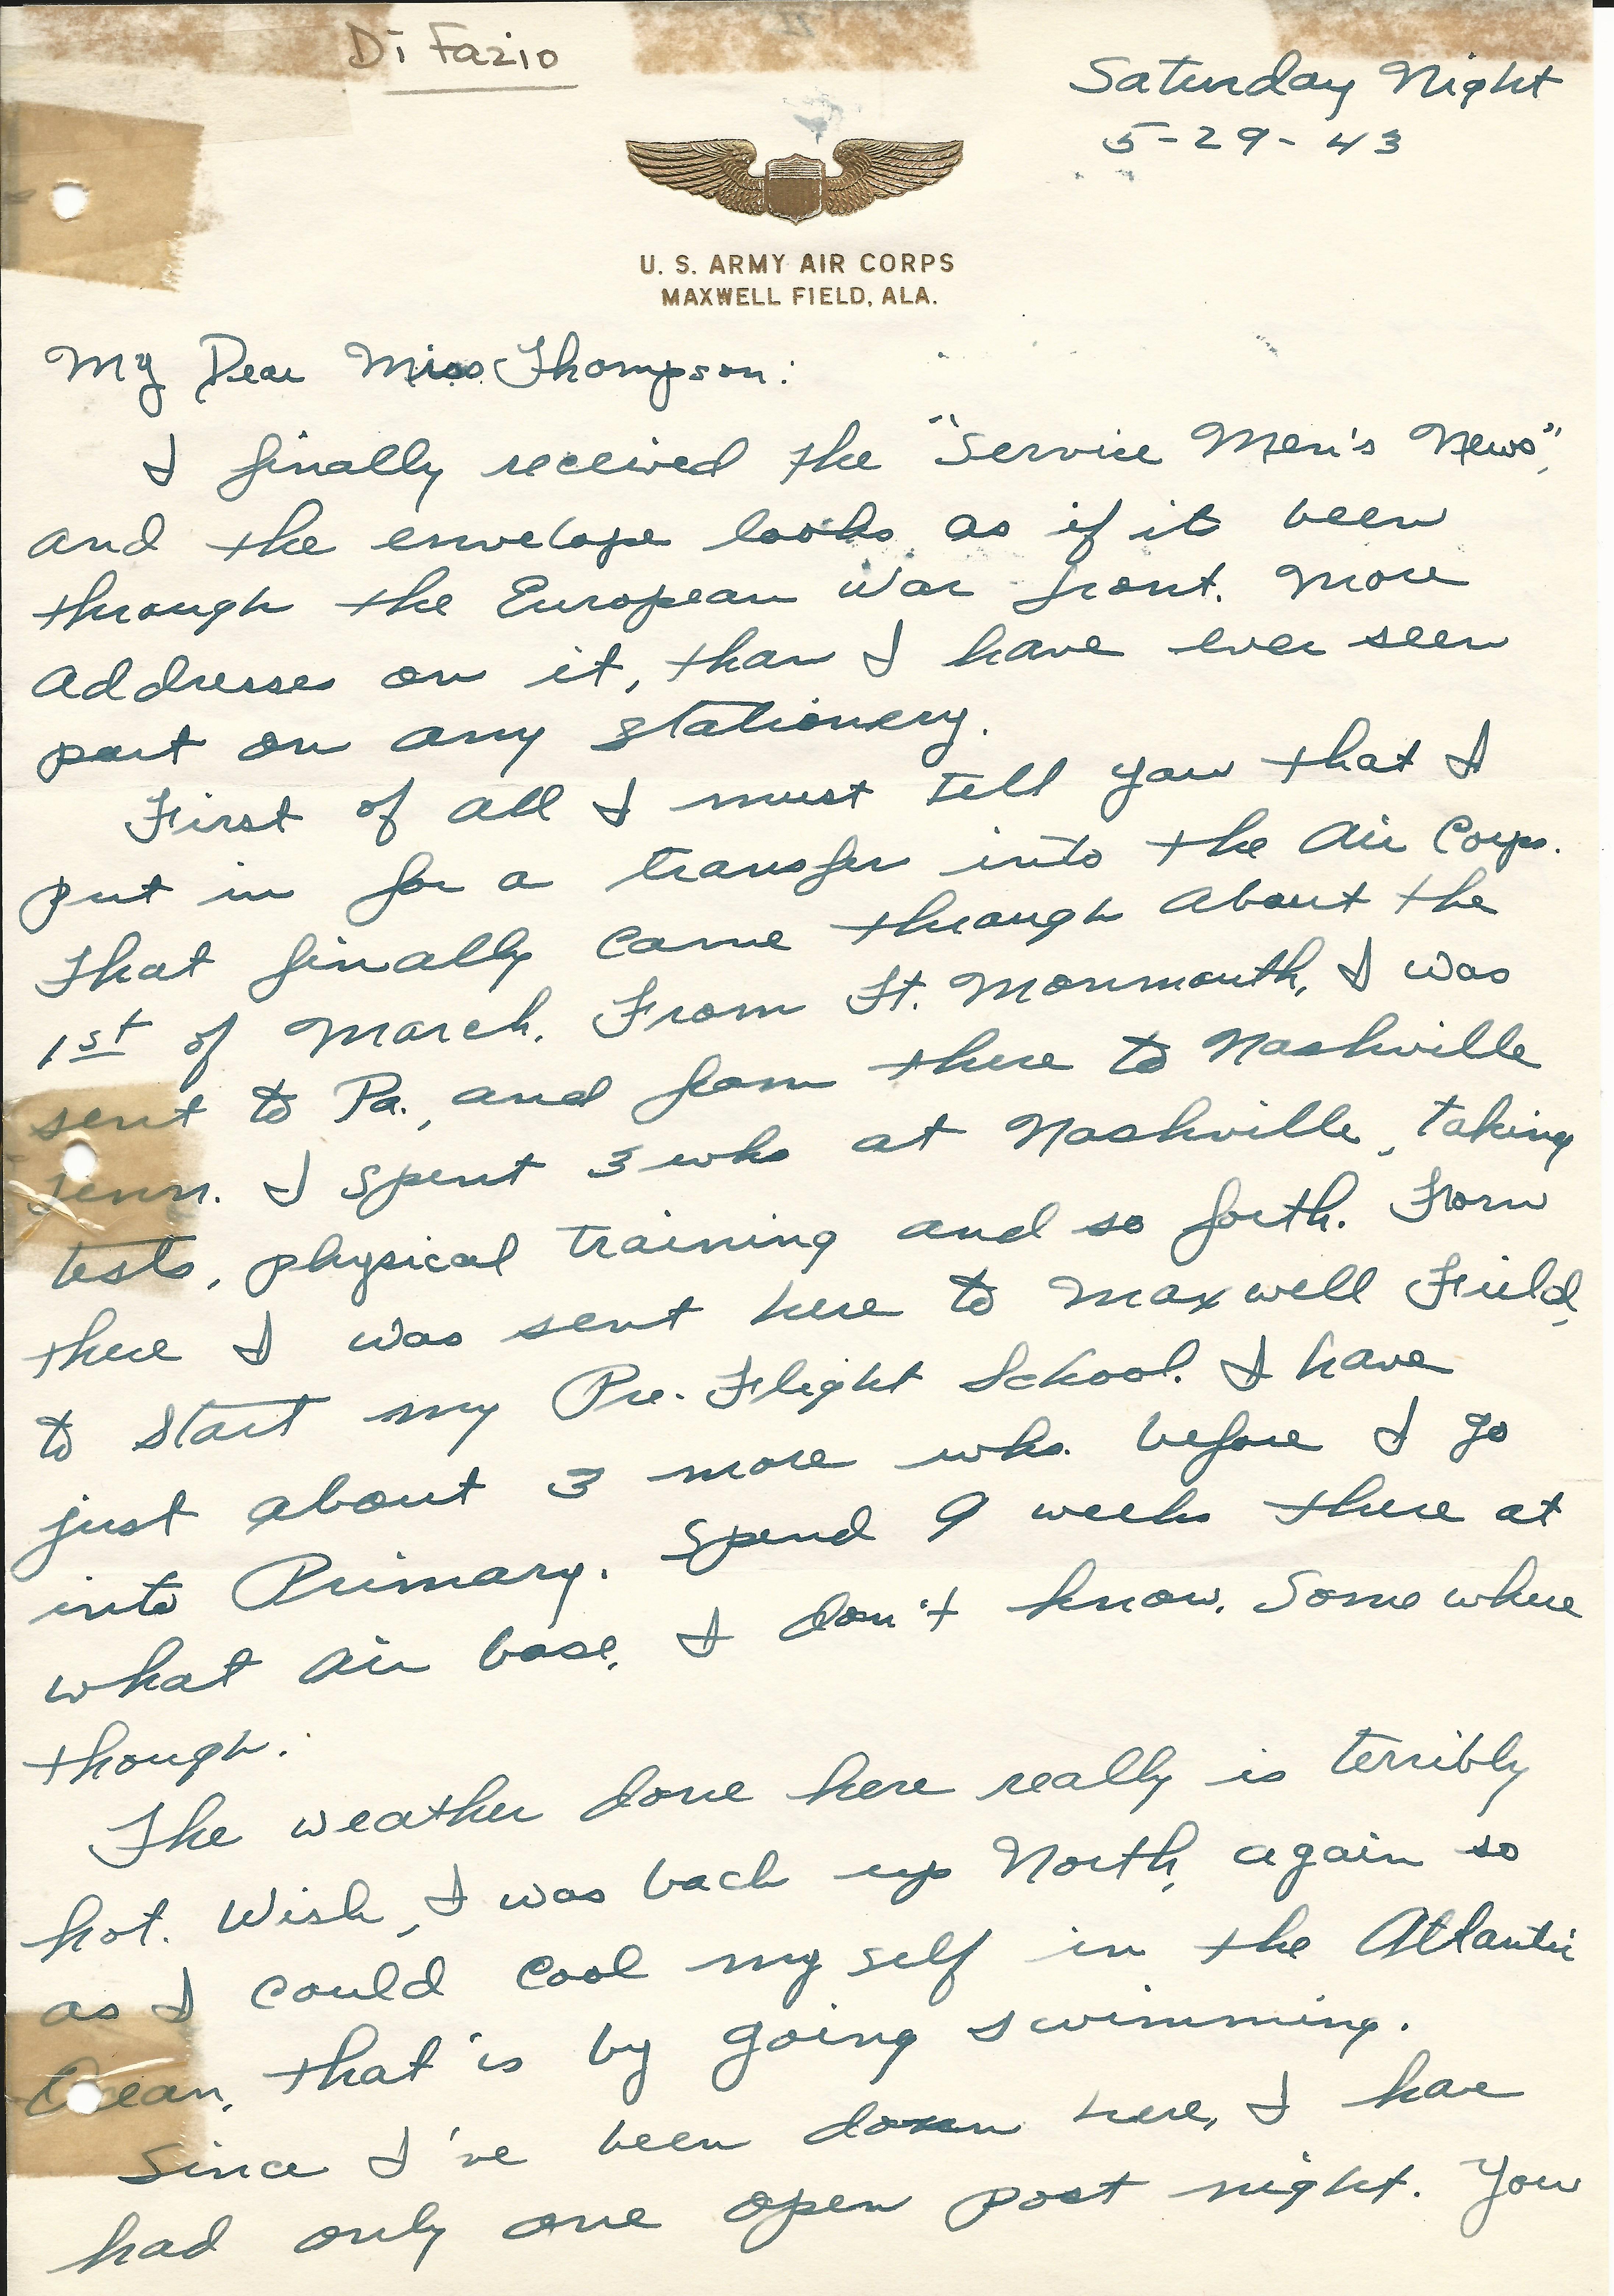 Di Fazio
Saturday Night
5-29-43
U. S. ARMY AIR CORPS
MAXWELL FIELD, ALA.
My Dear Miss Thompson:
I finally received the "Service Men's News",
and the envelope looks as if it been
through the European War front. More
addresses on it, than I have ever seen
part on any stationery.
First of all I must tell you that I
put in for a transfer into the Air Corps.
That finally came through about the
1st of March. From Ft. Monmouth, I was
sent to Pa., and from there to Nashville
Tenn. I spent 3 wks at Nashville, taking
tests, physical training and so forth. From
there I was sent here to Maxwell Field,
to start my Pre-Flight School. I have
just about 3 more wks. before I go
into Primary. Spend 9 weeks there at
what air base, I don't know. Some where
though.
The weather done here really is terribly
hot. Wish, I was back up North, again so
as I could cool my self in the Atlantic
Ocean, that is by going swimming.
Since I've been down here, I have
had only one open post night. You